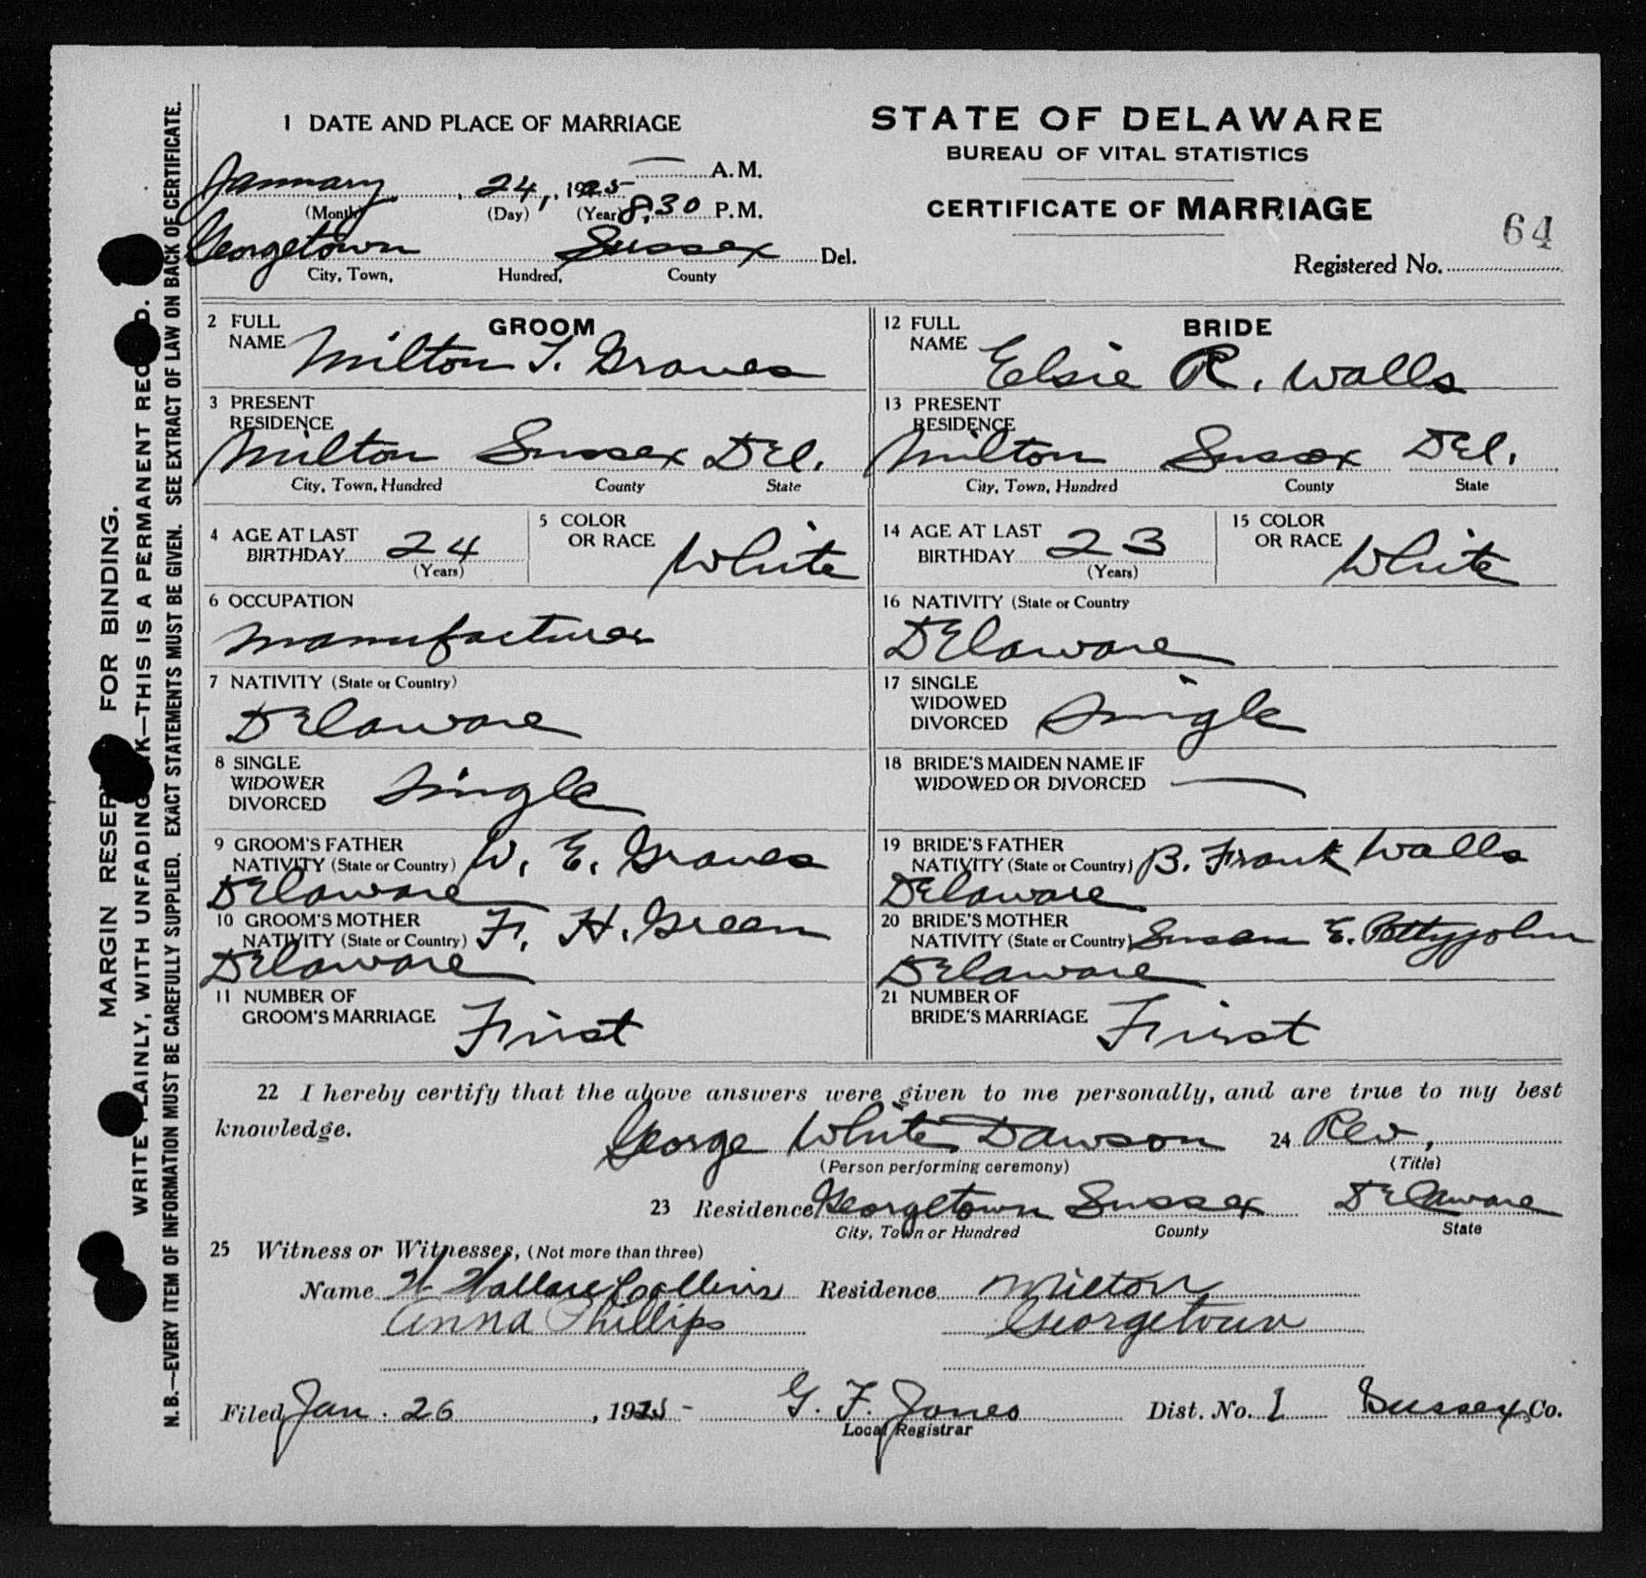 1 DATE AND PLACE OF MARRIAGE
January 24, 1925 A.M.
(Month) (Day) (Year) 8,30 P.M.
Georgetown Sussex Del.
City, Town, Hundred, County
STATE OF DELAWARE
BUREAU OF VITAL STATISTICS
CERTIFICATE OF MARRIAGE
64
Registered No.
2 FULL NAME GROOM
Milton T. Graves
3 PRESENT RESIDENCE
Milton Sussex Del.
City, Town, Hundred County State
4 AGE AT LAST BIRTHDAY 24 (Years)
5 COLOR OR RACE White
6 OCCUPATION
Manufacturer
7 NATIVITY (State or Country)
Delaware
8 SINGLE WIDOWER DIVORCED Single
9 GROOM'S FATHER W. E. Graves
NATIVITY (State or Country)
Delaware
10 GROOM'S MOTHER F. H. Green
NATIVITY (State or Country)
Delaware
11 NUMBER OF GROOM'S MARRIAGE First
12 FULL NAME BRIDE
Elsie R. Walls
13 PRESENT RESIDENCE
Milton Sussex Del.
City, Town, Hundred County State
14 AGE AT LAST BIRTHDAY 23 (Years)
15 COLOR OR RACE White
16 NATIVITY (State or Country
Delaware
17 SINGLE WIDOWED DIVORCED Single
18 BRIDE'S MAIDEN NAME IF WIDOWED OR DIVORCED —
19 BRIDE'S FATHER B. Frank Walls
NATIVITY (State or Country)
Delaware
20 BRIDE'S MOTHER Susan E. Pettyjohn
NATIVITY (State or Country)
Delaware
21 NUMBER OF BRIDE'S MARRIAGE First
22 I hereby certify that the above answers were given to me personally, and are true to my best
knowledge. George White Dawson 24 Rev,
(Person performing ceremony) (Title)
23 Residence Georgetown Sussex Delaware
City, Town or Hundred County State
25 Witness or Witnesses, (Not more than three)
Name W Wallace Collins Residence Milton
Anna Phillips Georgetown
Filed Jan. 26, 1925 - G. F. Jones Dist. No. 1 Sussex Co.
Local Registrar
MARGIN RESERV FOR BINDING.
WRITE PLAINLY, WITH UNFADING INK—THIS IS A PERMANENT RECORD.
N. B.—EVERY ITEM OF INFORMATION MUST BE CAREFULLY SUPPLIED. EXACT STATEMENTS MUST BE GIVEN. SEE EXTRACT OF LAW ON BACK OF CERTIFICATE.